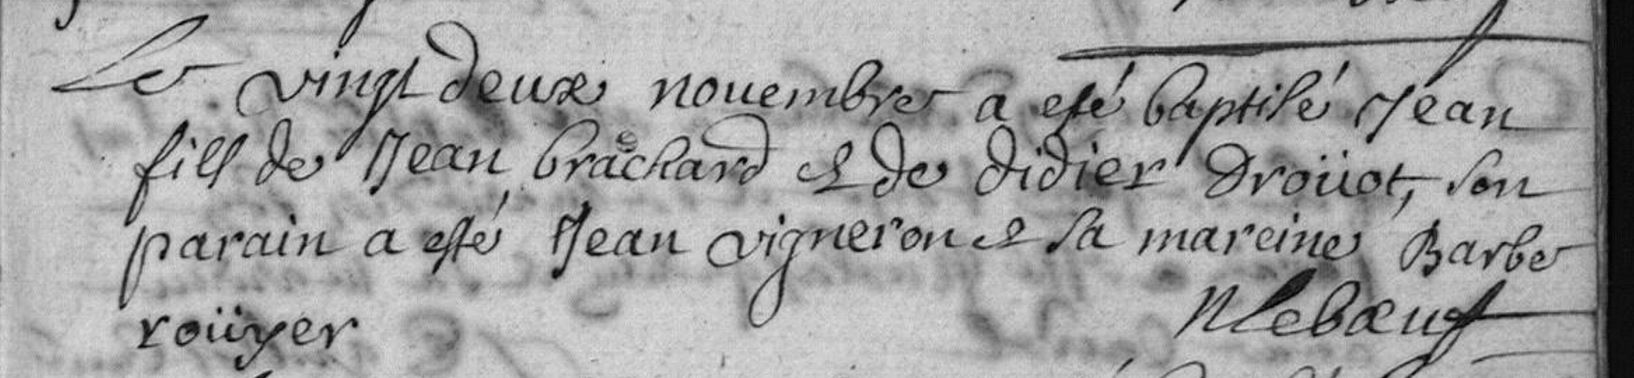 Le vingt deux nouembre a esté baptisé Jean
fils de Jean brachard et de didier Droüot, son
parain a esté Jean vigneron et sa mareine Barbe
roüyer
N Lebœuf